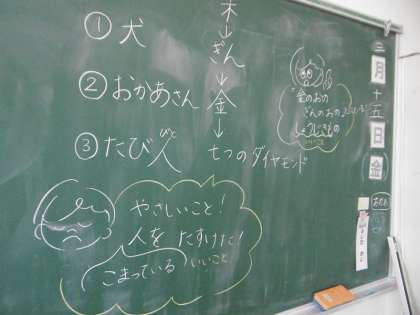 ① 犬
② おかあさん
③ たび人
びと
木
↓
ぎん
↓
金
↓
七つのダイヤモンド
やさしいこと！
人をたすけた！
こまっている
いいこと
金のおの
ぎんのおの
しょうじきもの
三月十五日金